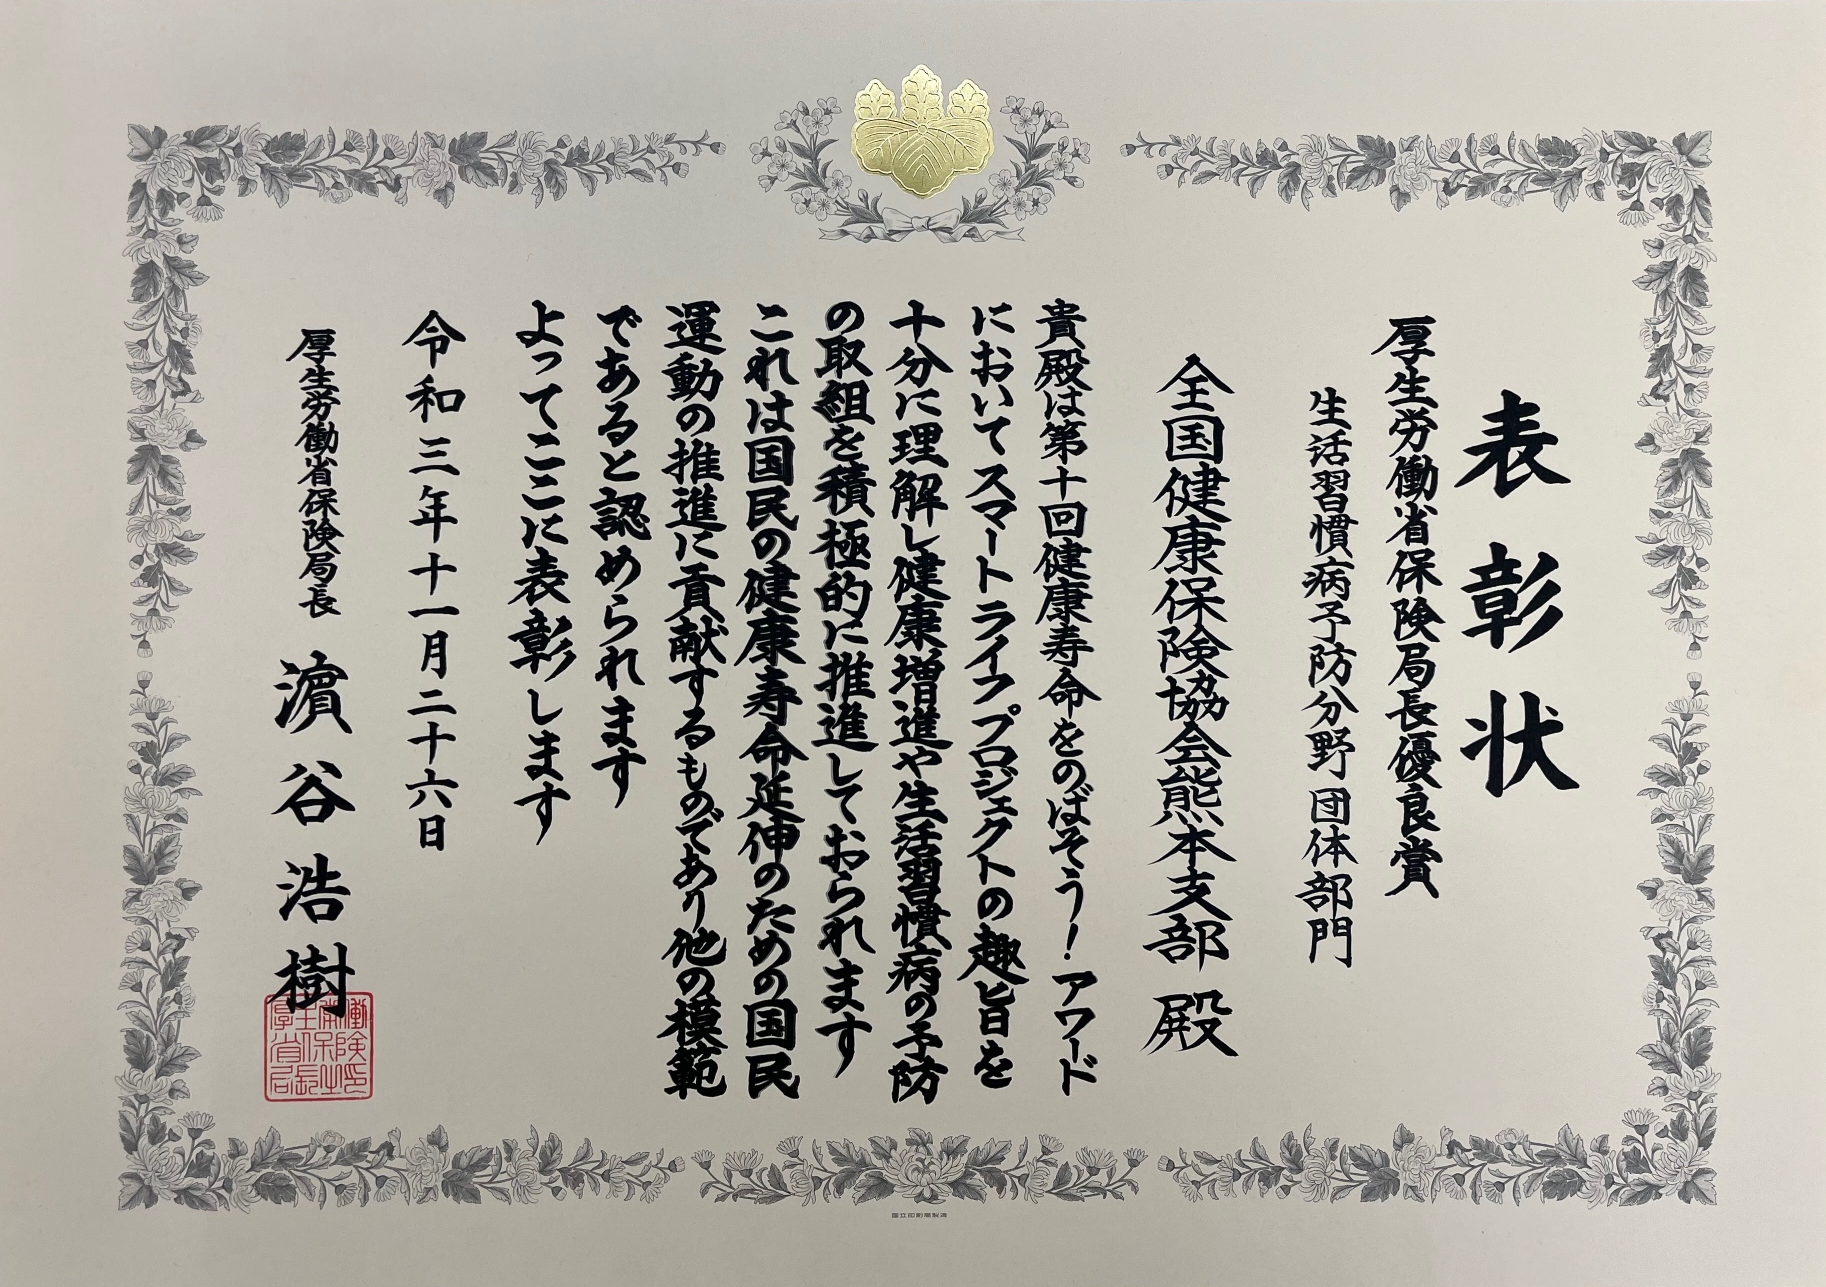 表彰状
厚生労働省保険局長優良賞
生活習慣病予防分野 団体部門
全国健康保険協会熊本支部 殿
貴殿は第十回健康寿命をのばそう!アワード
においてスマートライフプロジェクトの趣旨を
十分に理解し健康増進や生活習慣病の予防
の取組を積極的に推進しておられます
これは国民の健康寿命延伸のための国民
運動の推進に貢献するものであり他の模範
であると認められます
よってここに表彰します
令和三年十一月二十六日
厚生労働省保険局長 濵谷浩樹
国立印刷局製造